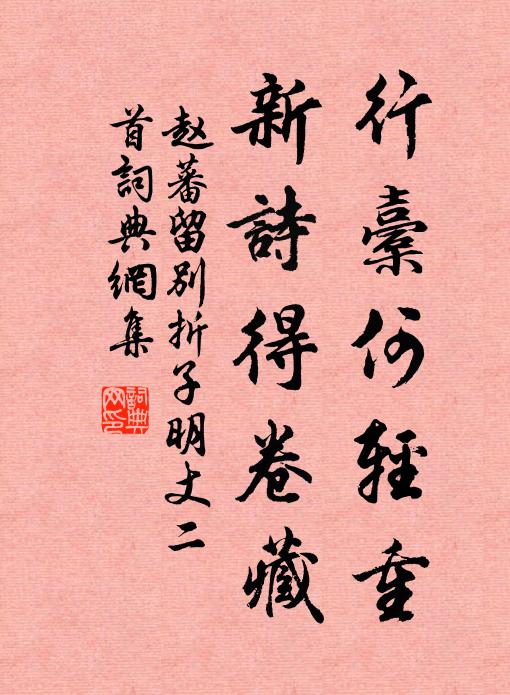 行橐何轻重
新詩得卷藏
赵蕃留别折子明丈二
首詞典網集
詞典
网印